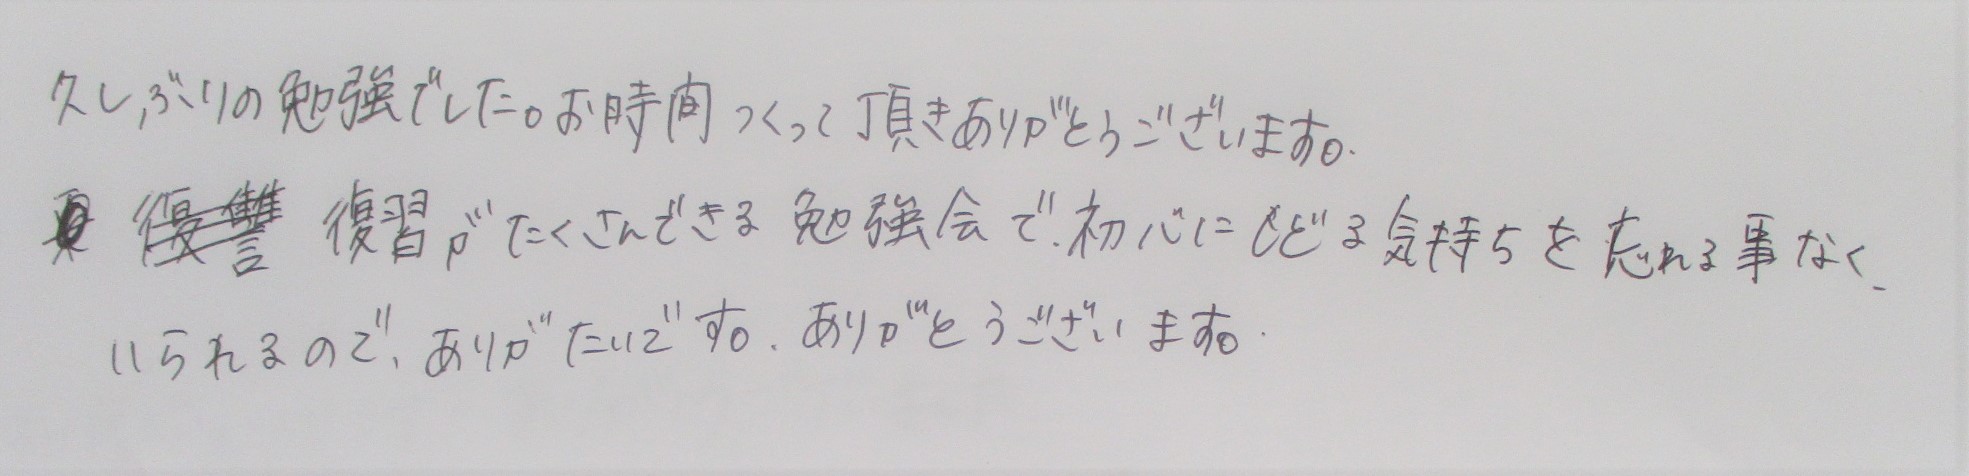 久しぶりの勉強でした。お時間つくって頂きありがとうございます。
復讐 復習がたくさんできる勉強会で、初心にもどる気持ちを忘れる事なく
いられるので、ありがたいです。ありがとうございます。